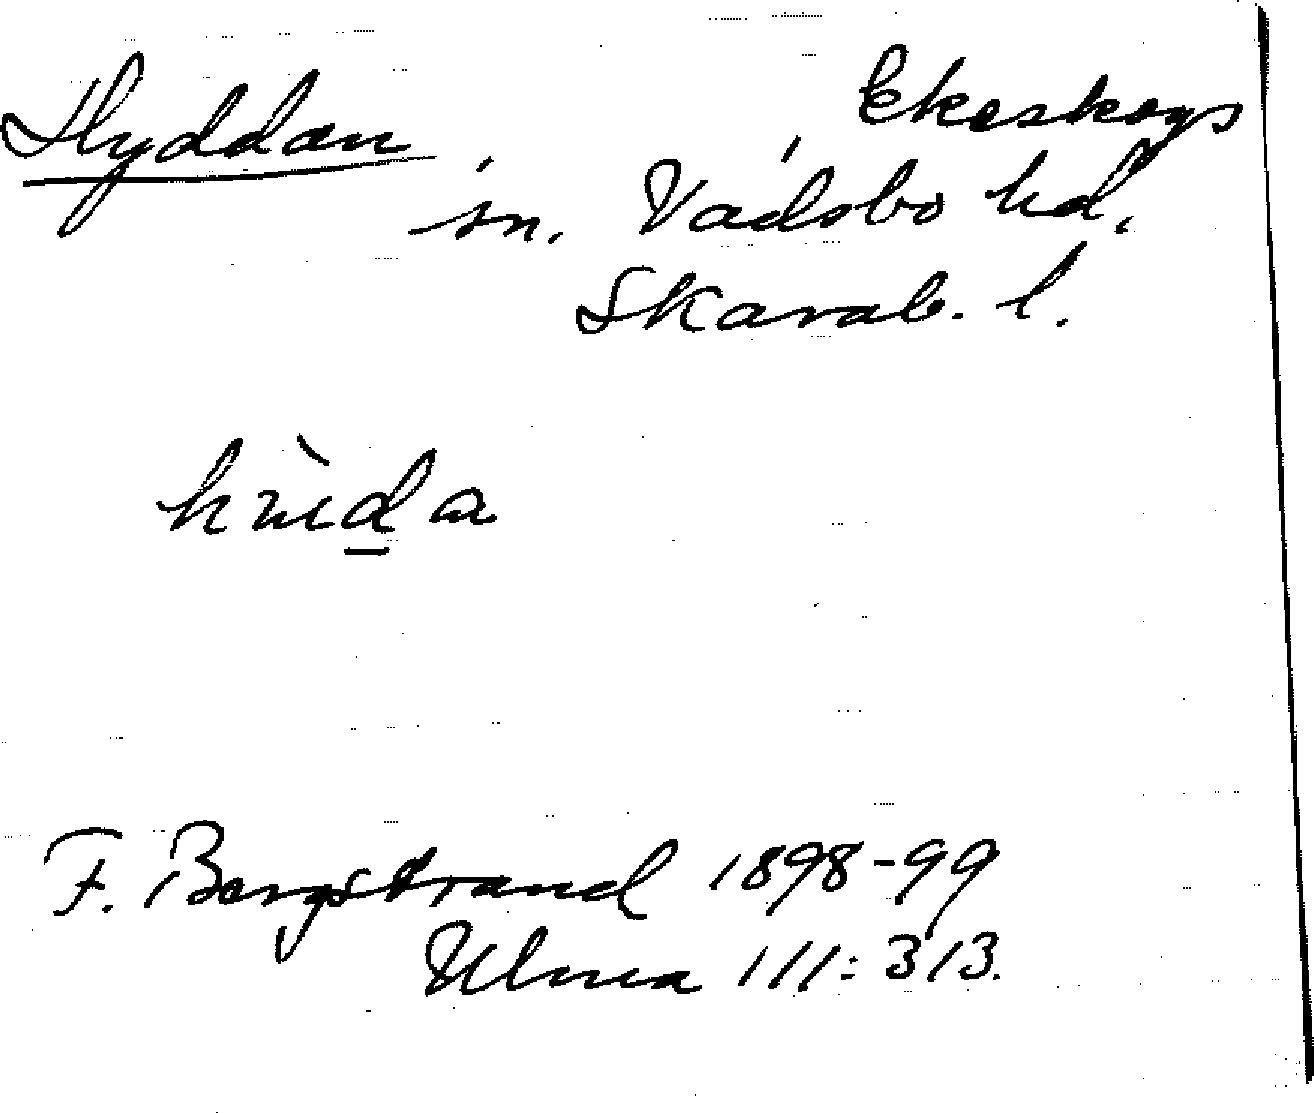 Hyddan Ekeskogs
sn. Vadsbo hd.
Skarab. l.
F. Bergstrand 1898-99
Ulma 111:313.